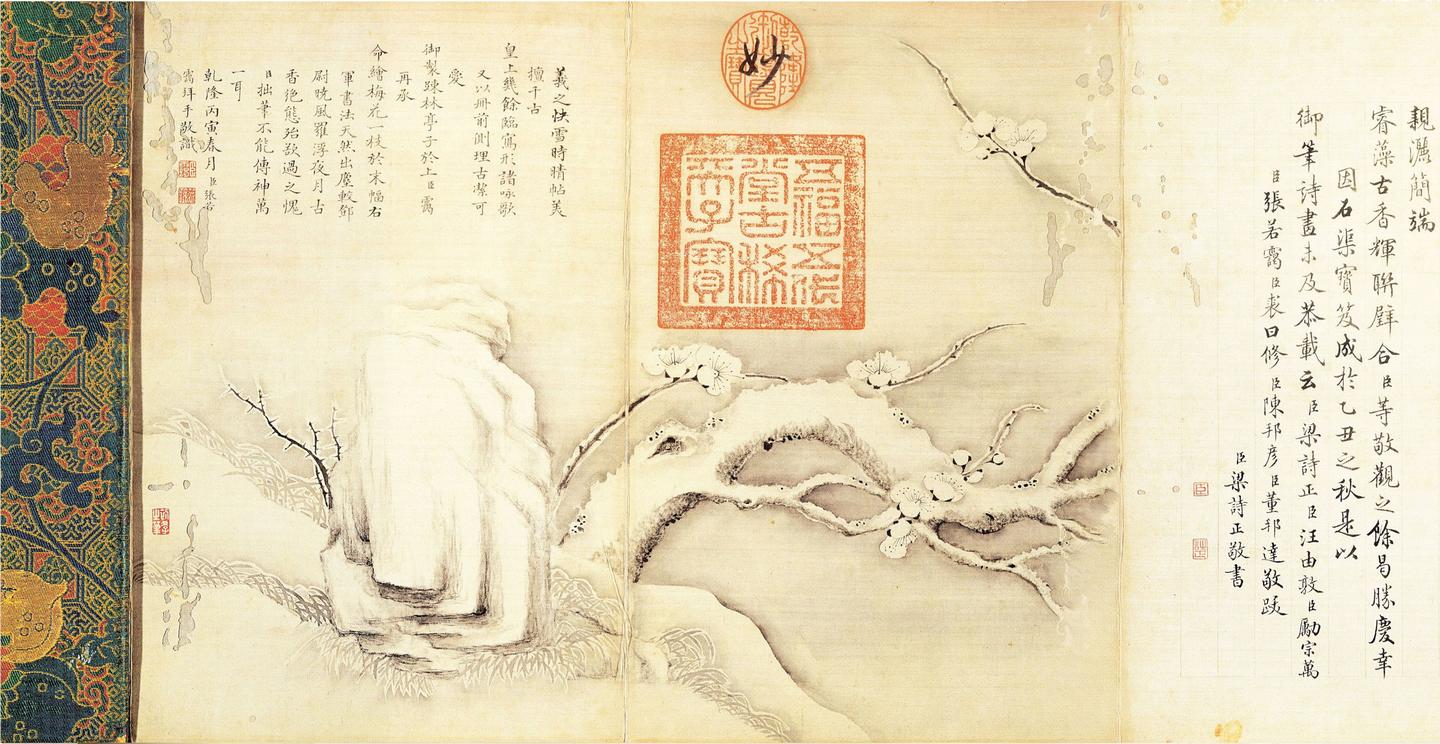 親灑簡端
睿藻古香輝聯璧合臣等敬觀之餘曷勝慶幸
因石渠寶笈成於乙丑之秋是以
御筆詩畫未及恭載云臣梁詩正臣汪由敦臣勵宗萬
臣張若靄臣裘曰修臣陳邦彥臣董邦達敬跋
臣梁詩正敬書
妙
五福五代
堂古稀
天子寶
羲之快雪時晴帖美
擅千古
皇上幾餘臨寫形諸咏歌
又以冊前側理古潔可
愛
御製疎林亭子於上臣靄
再承
命繪梅花一枝於末幅右
軍書法天然出塵較鄧
尉曉風羅浮夜月古
香絕態殆欲過之愧
臣拙筆不能傳神萬
一耳
乾隆丙寅春月臣張若
靄拜手敬識